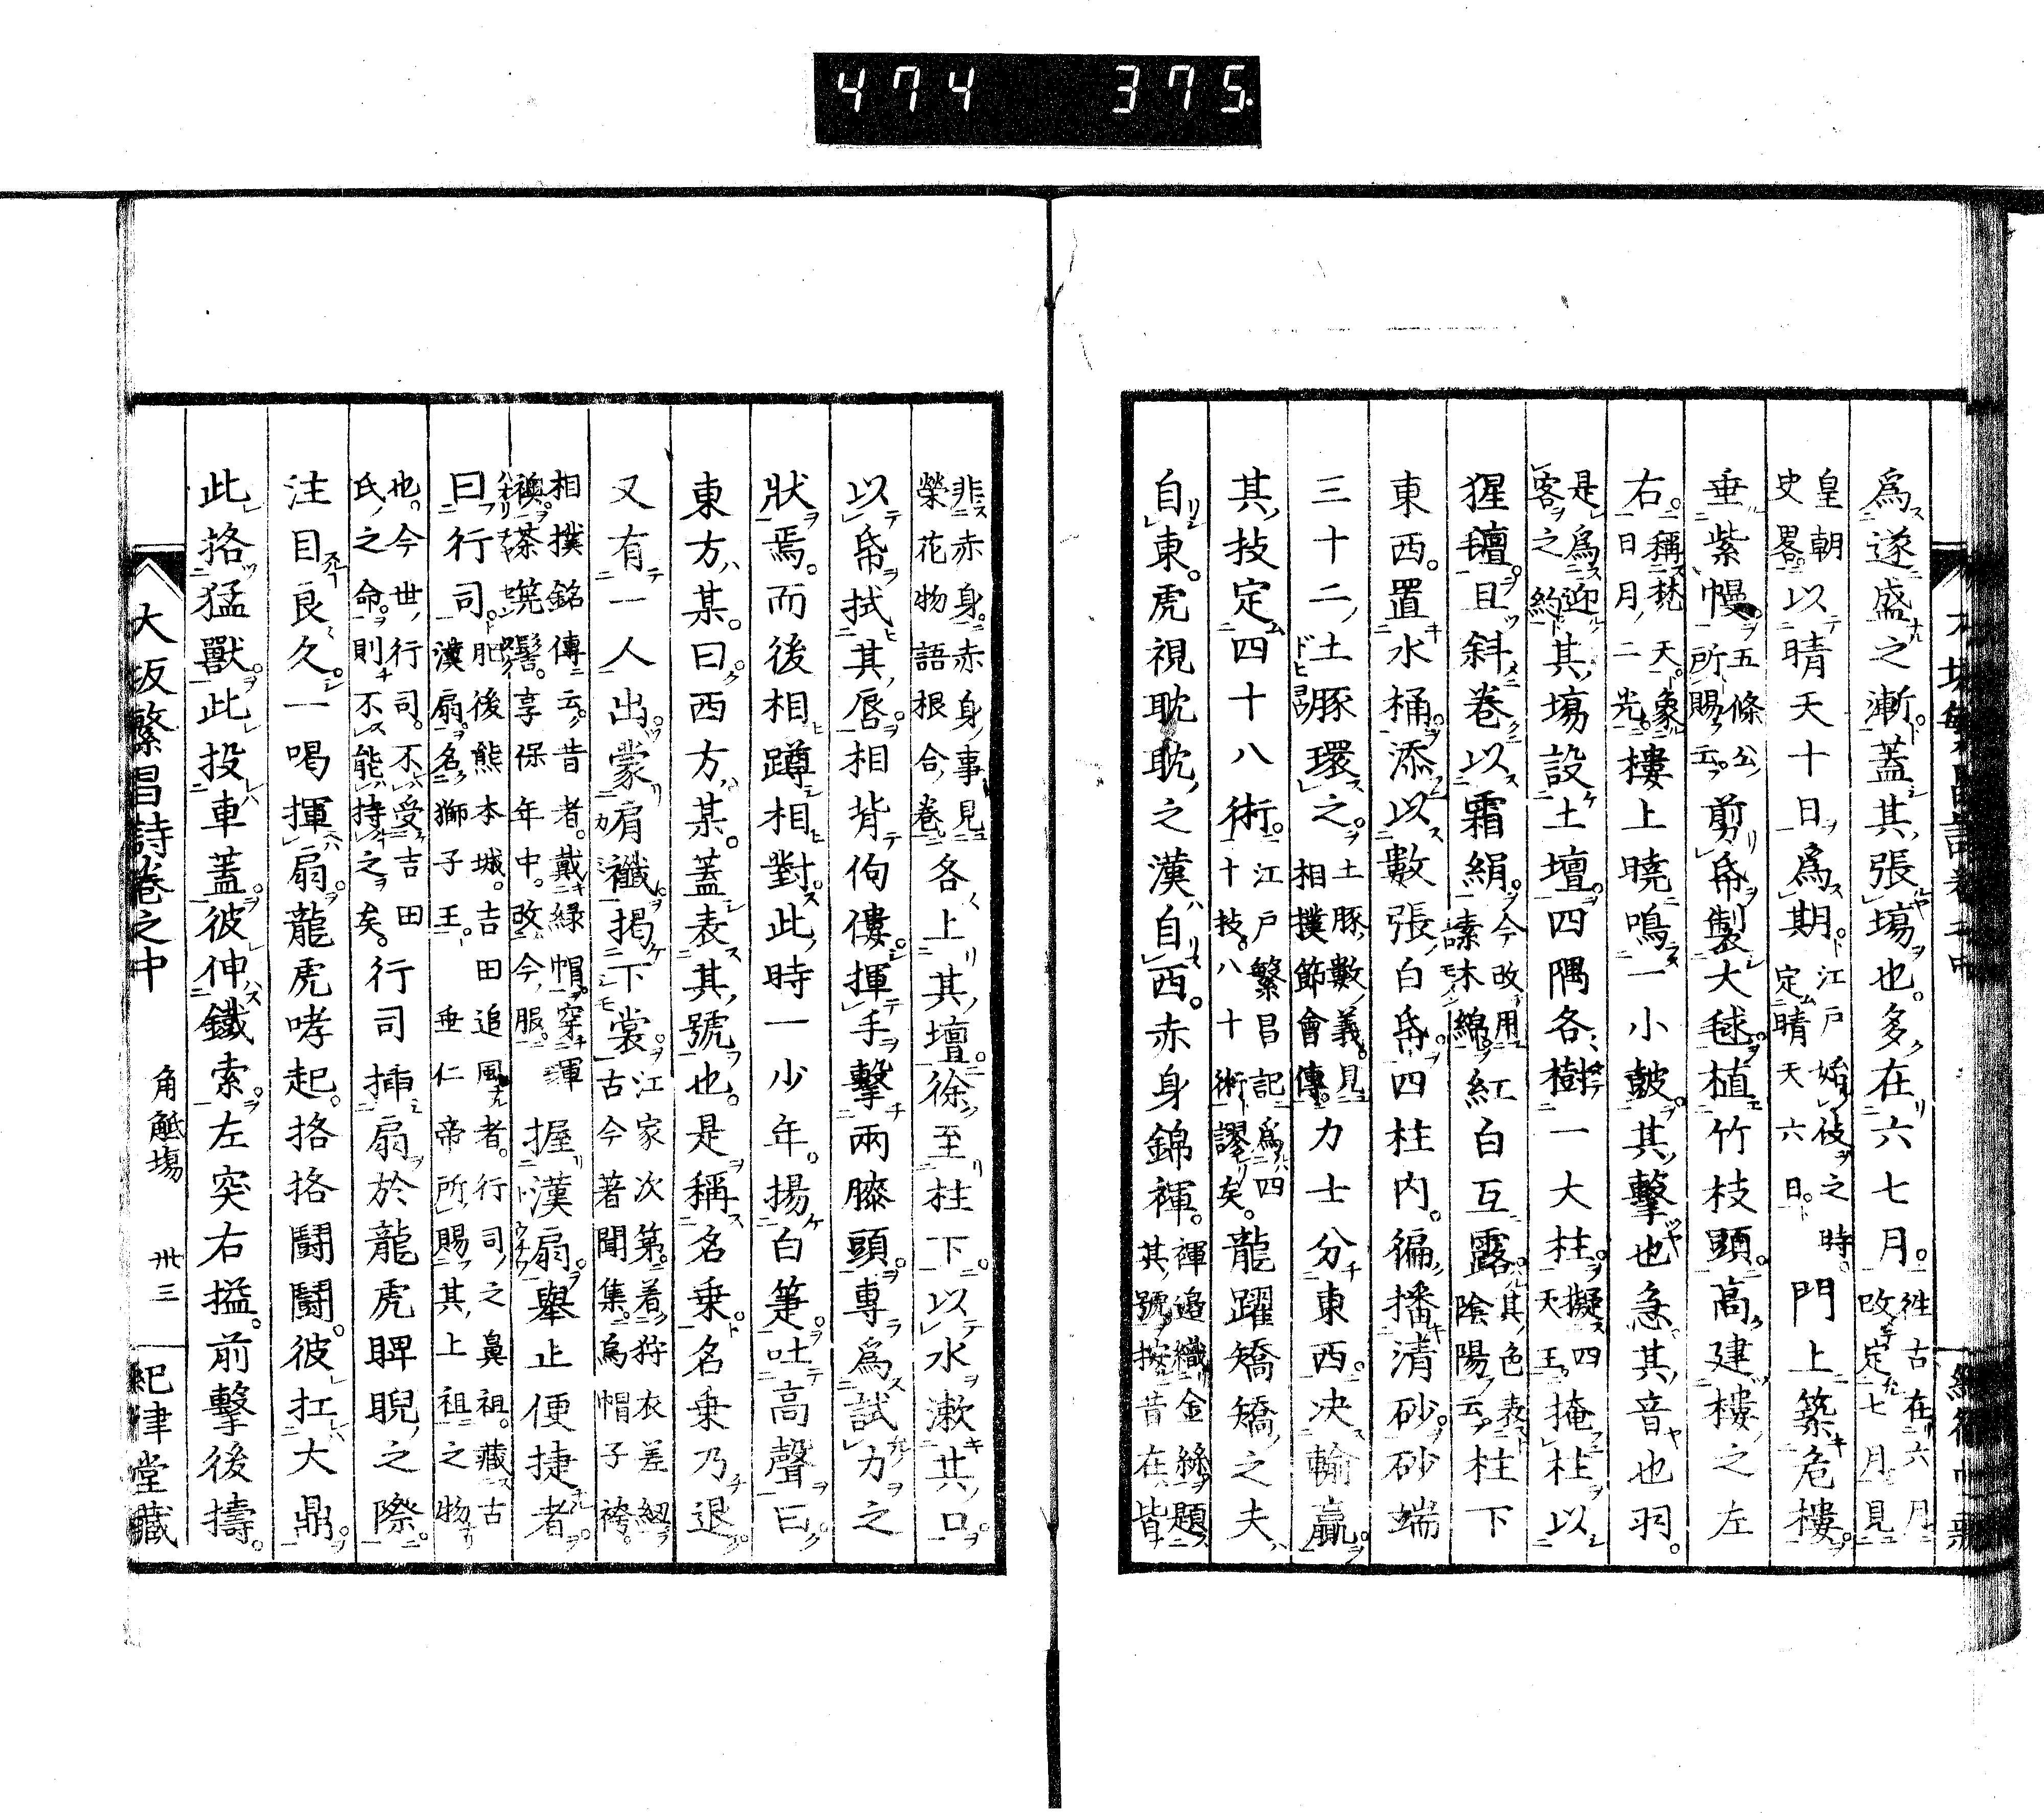 474 375.
爲遂盛之漸蓋其張塲也多在六七月往古在六月改定七月見
皇朝史畧以晴天十日爲期江戸始伎之時定晴天六日門上築危樓
垂紫幔五條公所賜云剪帋製大毬植竹枝頭高建樓之左
右稱梵天象日月二光樓上曉鳴一小皷其擊也急其音也羽
是爲迎客之約其塲設土壇四隅各樹一大柱擬四天王掩柱以
猩氊且斜卷以霜絹今改用素木綿紅白互露其色表陰陽云柱下
東西置水桶添以數張白帋四柱内徧播清砂砂端
三十二土豚環之土豚數義見相撲節會傳力士分東西决輸贏
其技定四十八術江戸繁昌記爲四十技八十術謬矣龍躍矯矯之夫
自東虎視耽耽之漢自西赤身錦褌褌邉織金絲題其號按昔在皆
非赤身赤身事見榮花物語根合卷各上其壇徐至柱下以水漱其口
以帋拭其唇相背佝僂揮手擊兩膝頭專爲試力之
狀焉而後相蹲相對此時一少年揚白箑吐高聲曰
東方某曰西方某蓋表其號也是稱名乗名乗乃退
又有一人出蒙肩襳掲下裳江家次第着狩衣差紐古今著聞集爲帽子袴
相撲銘傳云昔者戴綠帽穿渾襖茶筅髻享保年中改今服握漢扇舉止便捷者
曰行司肥後熊本城吉田追風者行司之鼻祖藏古漢扇名獅子王垂仁帝所賜其上祖之物
也今世行司不受吉田氏之命則不能持之矣行司揷扇於龍虎睥睨之際
注目良久一喝揮扇龍虎哮起挌挌鬪鬪彼扛大鼎
此挌猛獸此投車蓋彼伸鐵索左突右搤前擊後擣
大坂繁昌詩卷之中 角觝塲 卅三 紀津堂藏